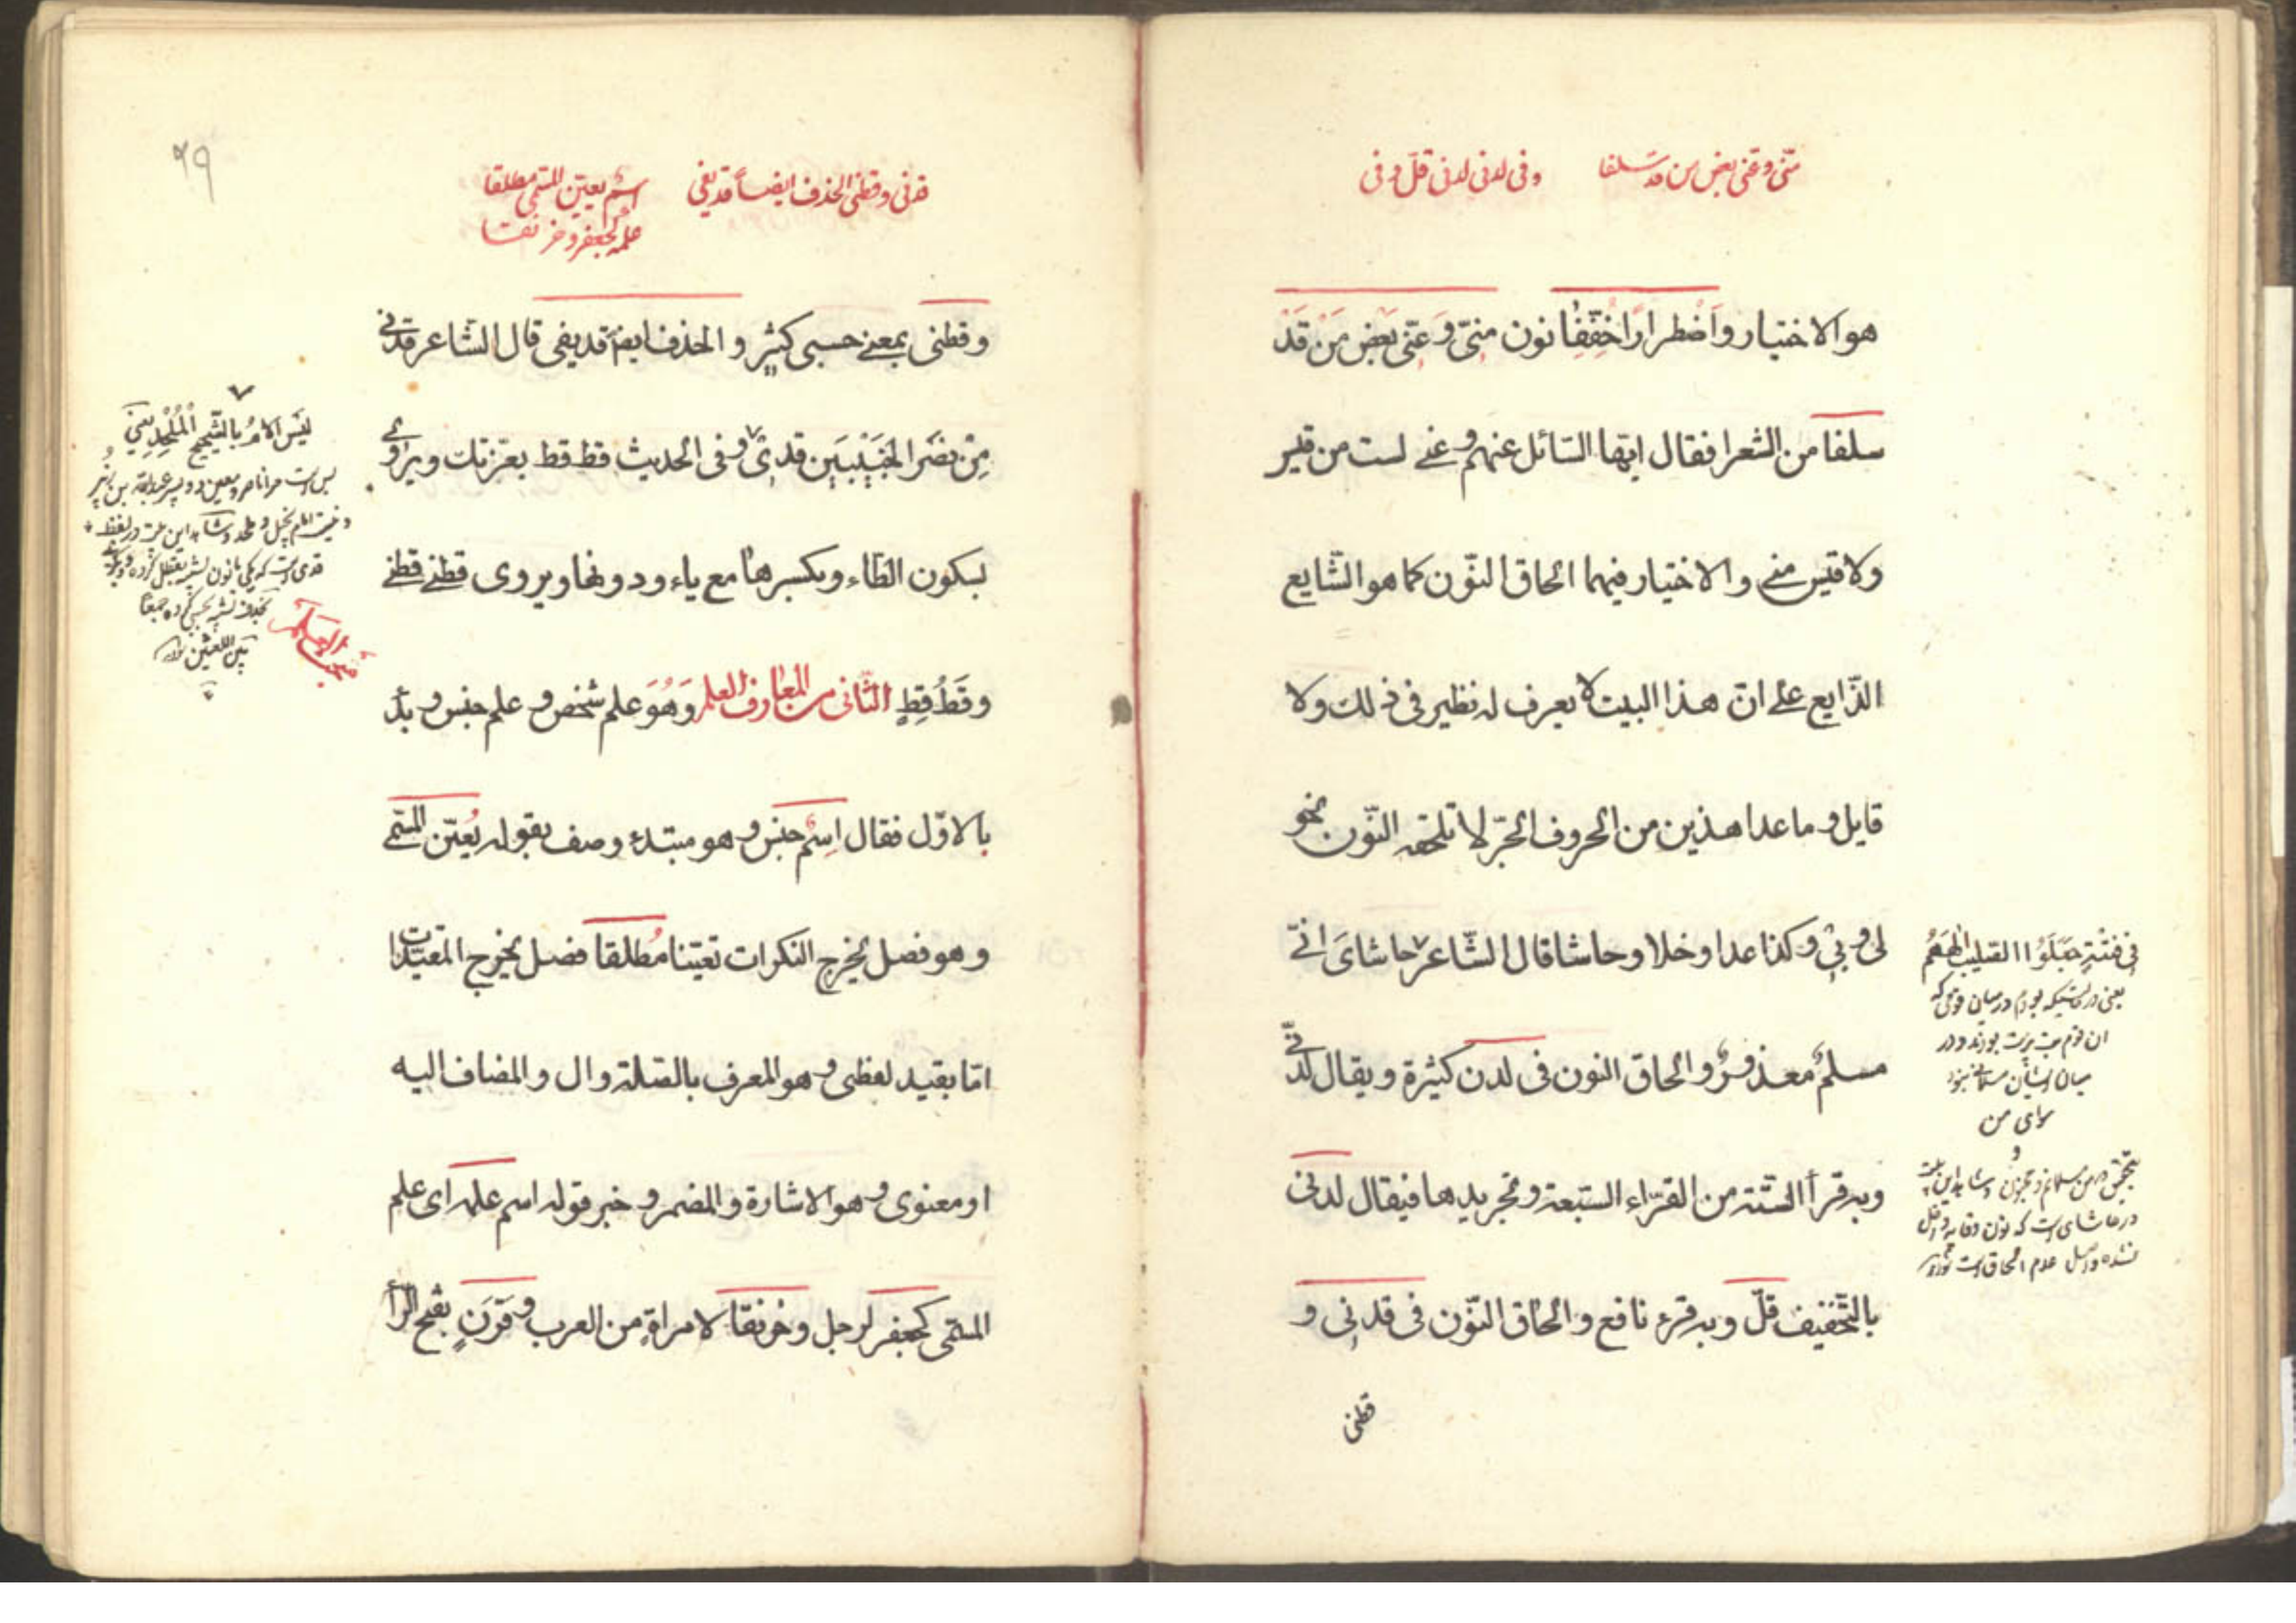 منّی وعنّی بعض من قد سلفا    وفی لدنی لدنی قلّ وفی
هو الاختیار واضطرارًا خفّفا نون منّی وَعنّی بعض مَن قَدْ
سلفا من الشعرا فقال ایها السّائل عنهم وعنی لست من قیس
ولا قیس منی والاختیار فیهما الحاق النّون کما هو الشّایع
الذّایع علی انّ هذا البیت لا یعرف له نظیر فی ذلك ولا
قایل وما عدا هذین من الحروف الجرّ لا تلحقه النّون نحو
لی وبی وکذا عدا وخلا وحاشا قال الشّاعر حاشای انّی
مسلمٌ معذورٌ والحاق النون فی لدن کثیرة ویقال لدنّی
وبه قرأ الستّة من القرّاء السّبعة وتجریدها فیقال لدنی
بالتّخفیف قلّ وبه قرء نافع والحاق النّون فی قدنی و
قطنی
فی فتیةٍ جعلوا الصلیب الههم
یعنی در حالتیکه بودم در میان قومی که
ان قوم بت پرست بودند ودر
میان ایشان مسلمانی نبود
سوای من
درحاشای است که نون وقایه داخل
نشده واصل عدم الحاق است
۶۹
قدنی وقطنی الحذف ایضاً قد یفی    اسمٌ یعیّن المسمّی مطلقا
علمه کجعفر وخرنقا
وقطنی بمعنی حسبی کثیر والحذف ایضا قد یفی قال الشّاعر قدنی
مِن نصر الخبیبین قدی وفی الحدیث قط قط بعزتك ویروی
بسکون الطّاء وبکسرها مع یاء ودونها ویروی قطنی قطنی
وقَطُ قِطٍ الثّانی من المعارف العلم وَهُوَ علم شخص وعلم جنس وبدأ
بالاوّل فقال اِسْم جنس وهو مبتدء وصف بقوله یُعیّن المسمّی
وهو فصل یخرج النکرات تعیّنا مُطلقا فصل یخرج المقیّدات
امّا بقید لفظی وهو المعرف بالصّلة وال والمضاف الیه
او معنوی وهو الاشارة والمضمر وخبر قوله اسم علمه ای علم
المسمّی کجعفر لرجل وخرنقا لامراةٍ من العرب وقَرَنٍ بفتح الرّأ
لیْسَ الامامُ بالشّحیحِ المُلْحِدِ
قدی است که یکی بانون
بین اللغتین